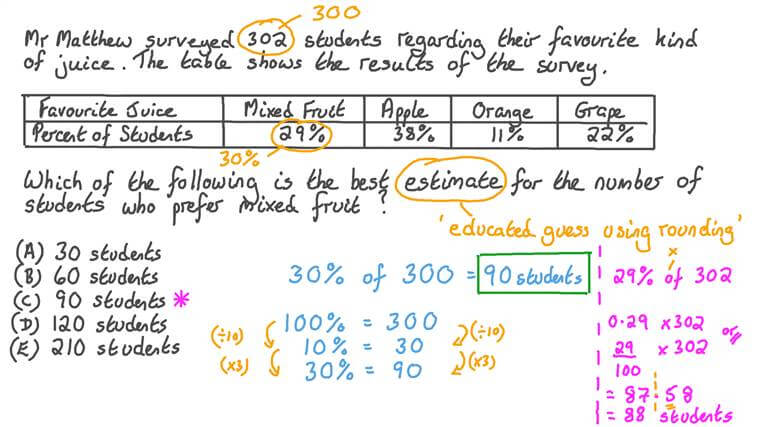 300
Mr Matthew surveyed 302 students regarding their favourite kind
of juice. The table shows the results of the survey.
Favourite Juice Mixed Fruit Apple Orange Grape
Percent of Students 29% 38% 11% 22%
30%
Which of the following is the best estimate for the number of
students who prefer mixed fruit?
'educated guess using rounding'
(A) 30 students
(B) 60 students
(C) 90 students *
(D) 120 students
(E) 210 students
30% of 300 = 90 students
100% = 300
(÷10) 10% = 30 (÷10)
(x3) 30% = 90 (x3)
x
29% of 302
0.29 x 302 or
29/100 x 302
= 87.58
= 88 students